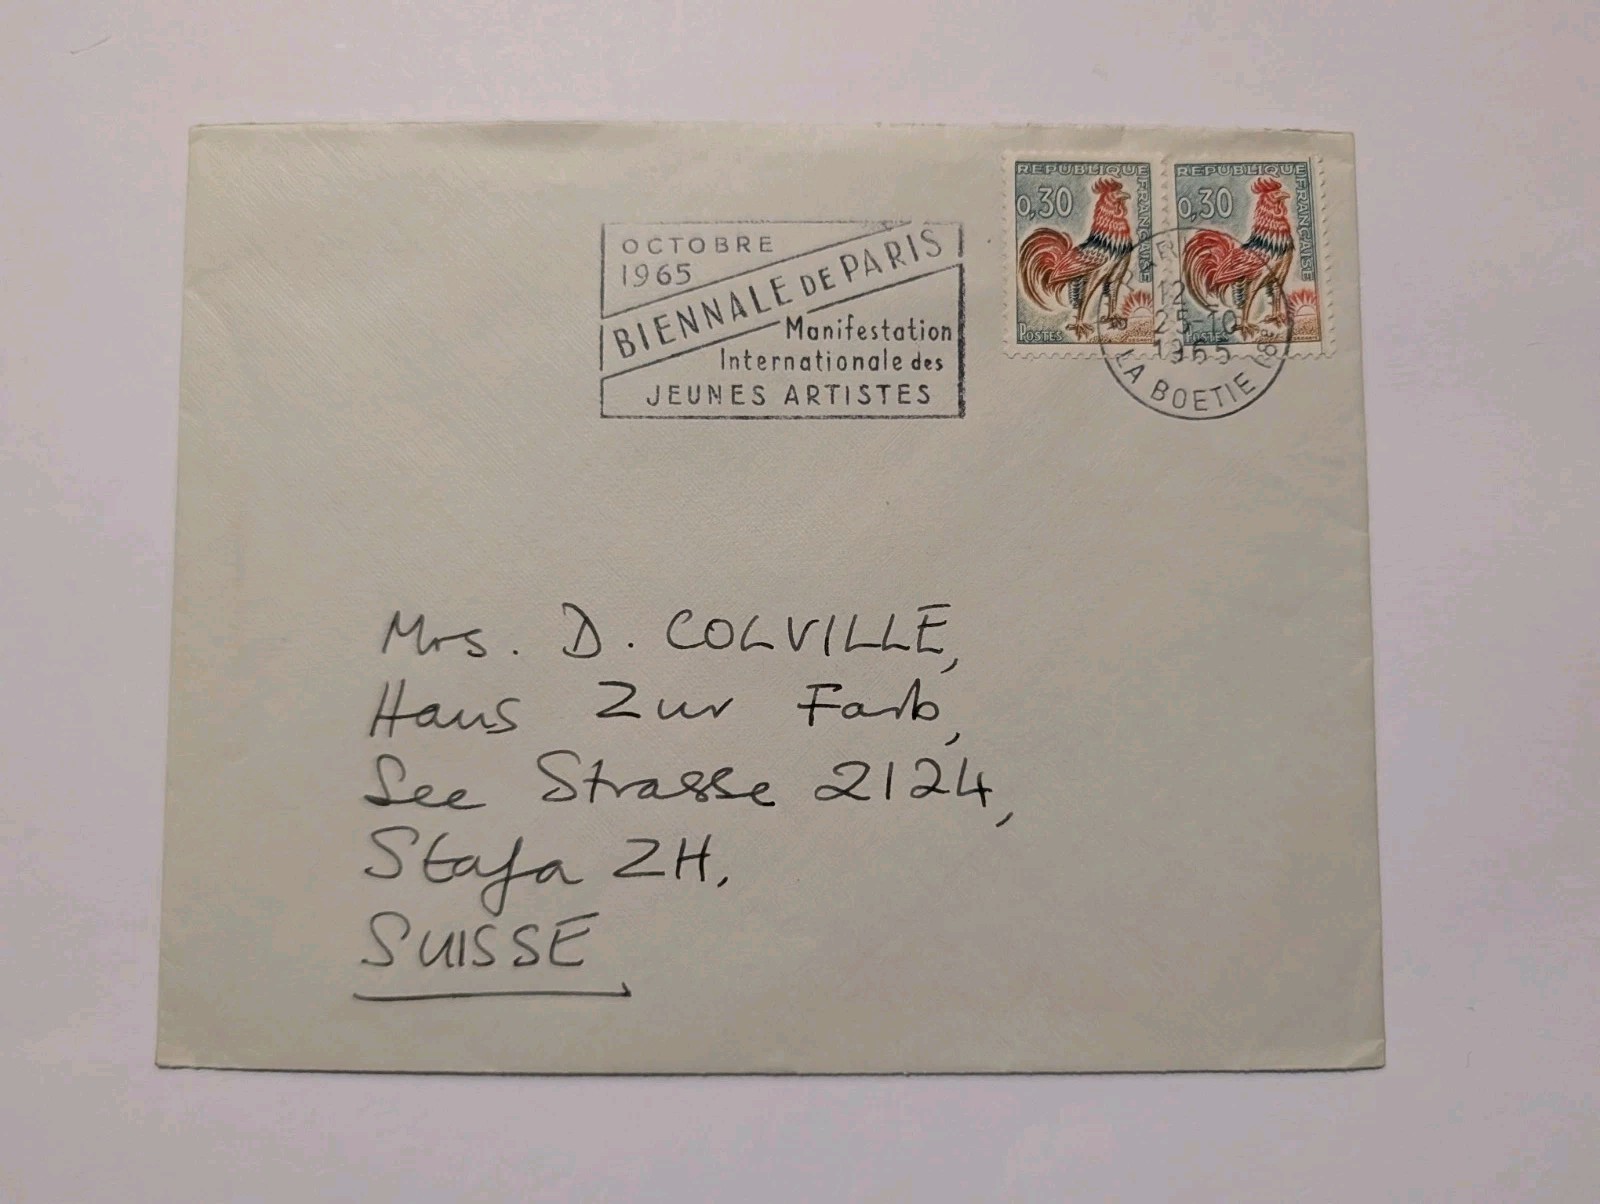 OCTOBRE
1965
BIENNALE DE PARIS
Manifestation
Internationale des
JEUNES ARTISTES
REPUBLIQUE FRANÇAISE
0,30
POSTES
REPUBLIQUE FRANÇAISE
0,30
POSTES
25-10
1965
LA BOETIE
Mrs. D. COLVILLE,
Haus Zur Farb,
See Strasse 2124,
Stafa ZH.
SUISSE